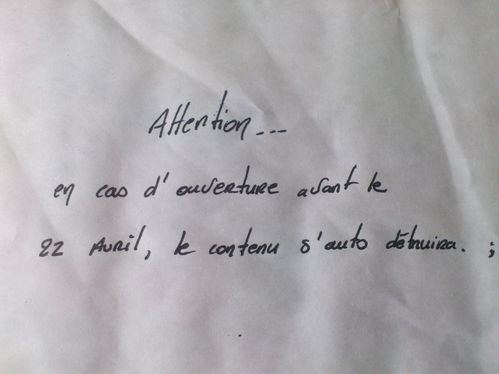 Attention...
en cas d'ouverture avant le
22 Avril, le contenu s'auto détruira. ;